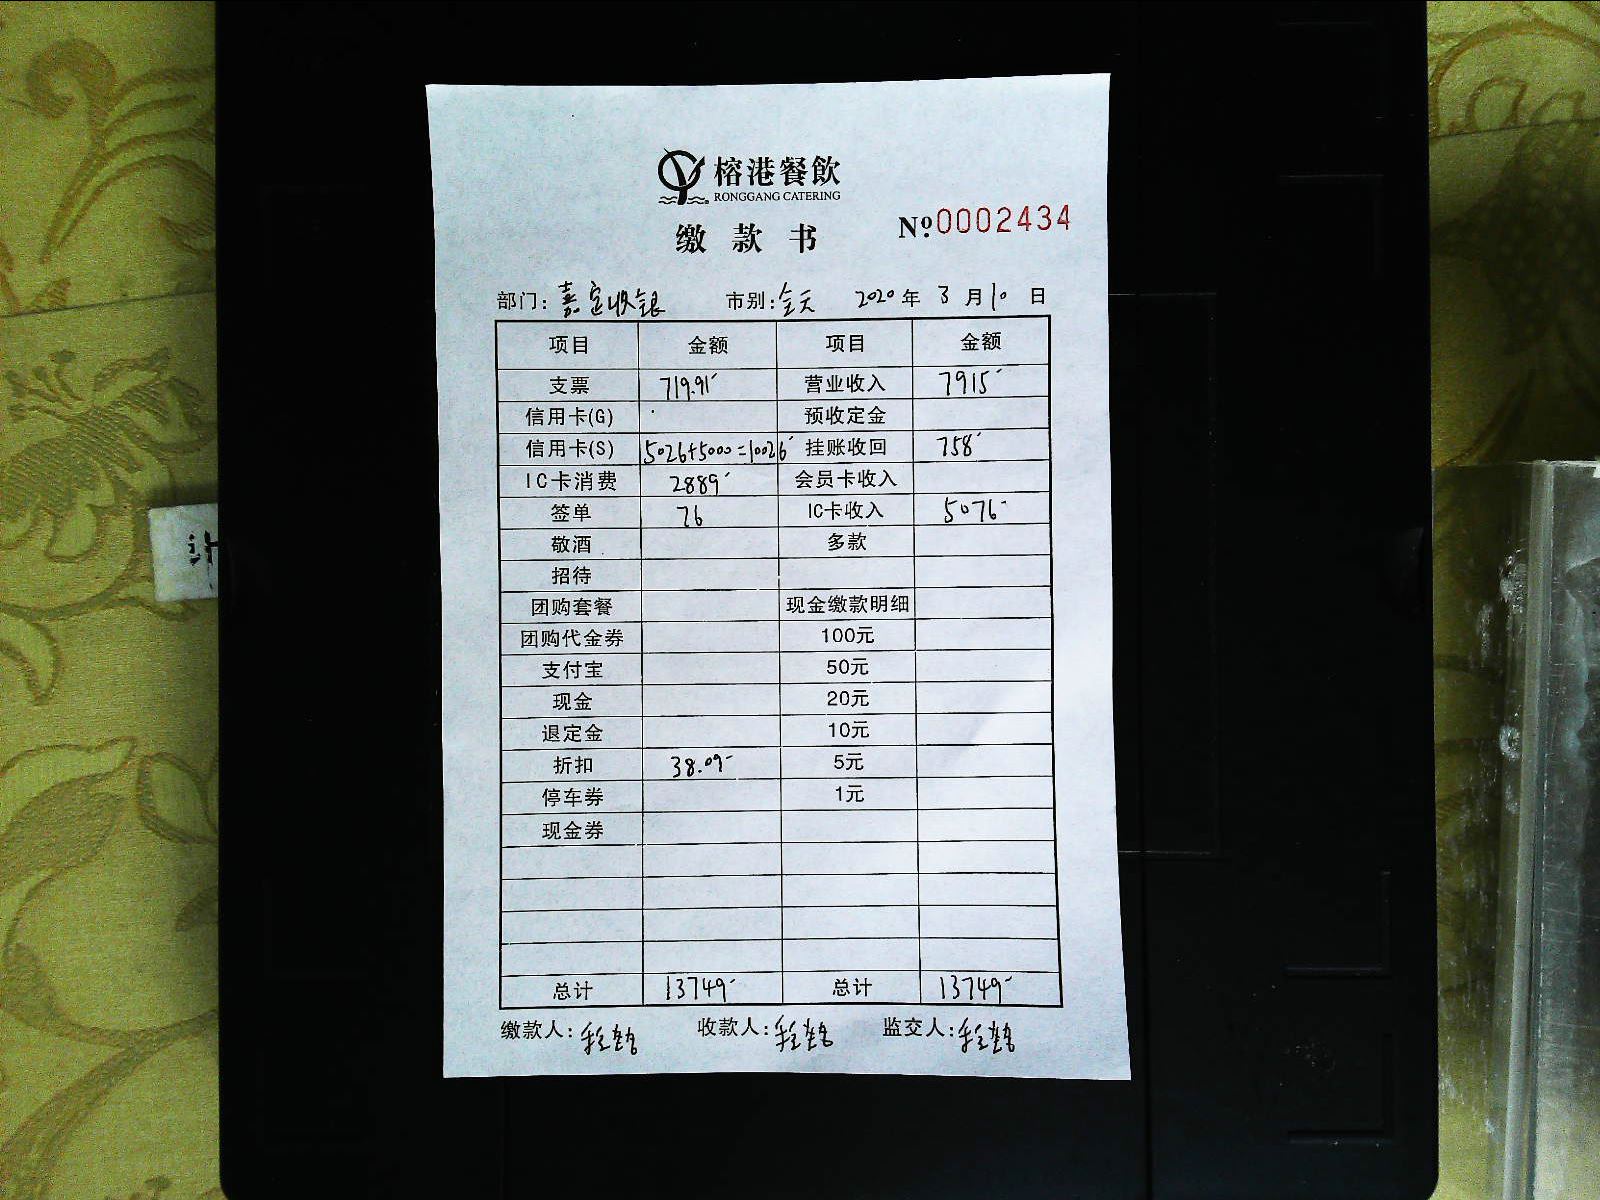 榕港餐飲
RONGGANG CATERING
缴款书
No.0002434
部门：嘉定收银 市别：全天 2020年3月10日
项目 金额 项目 金额
支票 719.91 营业收入 7915
信用卡(G) 预收定金
信用卡(S) 5026+5000=10026 挂账收回 758
IC卡消费 2889 会员卡收入
签单 76 IC卡收入 5076
敬酒 多款
招待
团购套餐 现金缴款明细
团购代金券 100元
支付宝 50元
现金 20元
退定金 10元
折扣 38.09 5元
停车券 1元
现金券
总计 13749 总计 13749
缴款人： 收款人： 监交人：